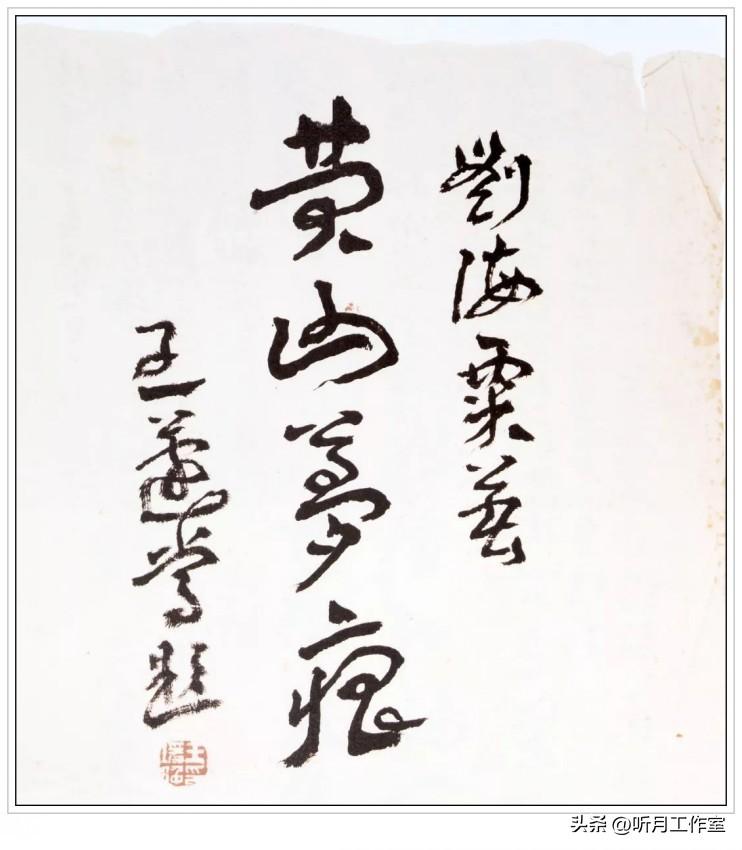 劉海粟著
黄山夢痕
王蘧常題
头条 @听月工作室